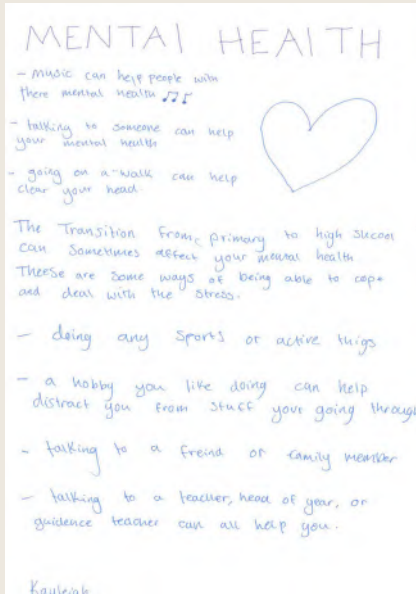 MENTAl HEALTH
- Music can help people with
there mental health ♫♪
- talking to someone can help
your mental health
- going on a walk can help
clear your head.
The Transition from primary to high school
can sometimes affect your mental health
Theese are some ways of being able to cope
and deal with the stress.
- doing any sports or active thigs
- a hobby you like doing can help
distract you from stuff your going through
- talking to a freind or family member
- talking to a teacher, head of year, or
guidence teacher can all help you.
Kayleigh